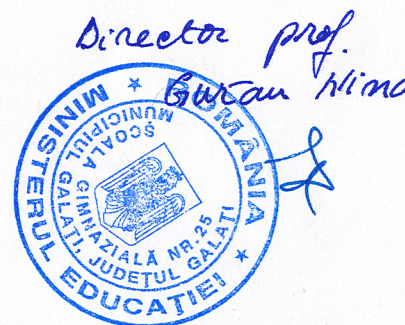 Director prof.
ROMÂNIA * MINISTERUL EDUCAȚIEI *
ȘCOALA GIMNAZIALĂ NR.25
MUNICIPIUL GALAȚI, JUDEȚUL GALAȚI